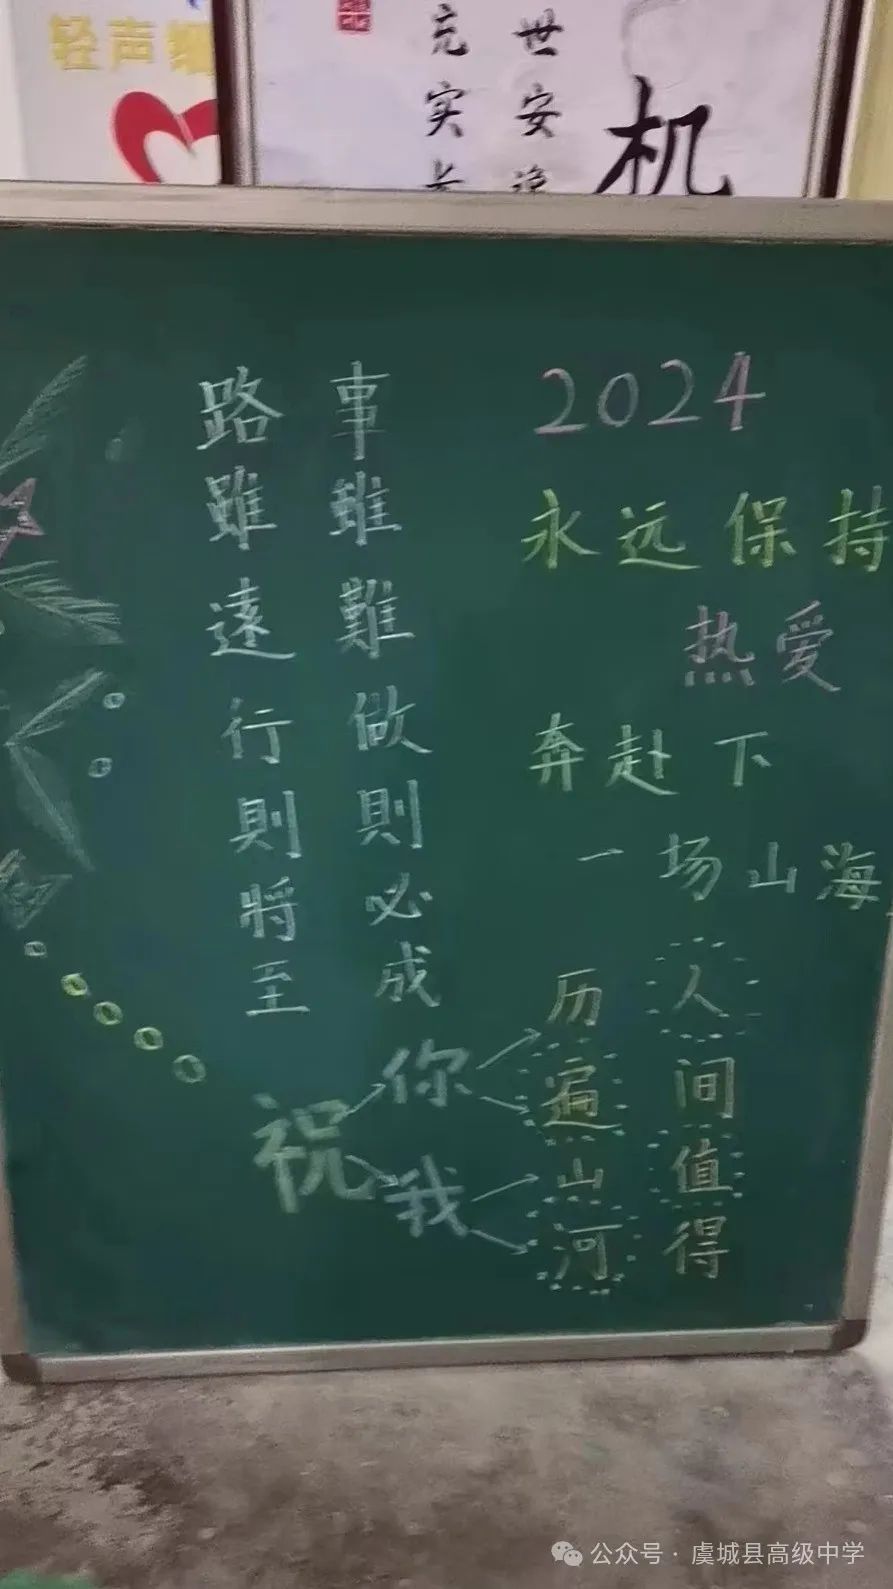 轻声
充实
世安
机
2024
永远保持
热爱
奔赴下
一场山海
路雖遠行則將至
事雖難做則必成
祝你我
历遍山河
人间值得
公众号·虞城县高级中学